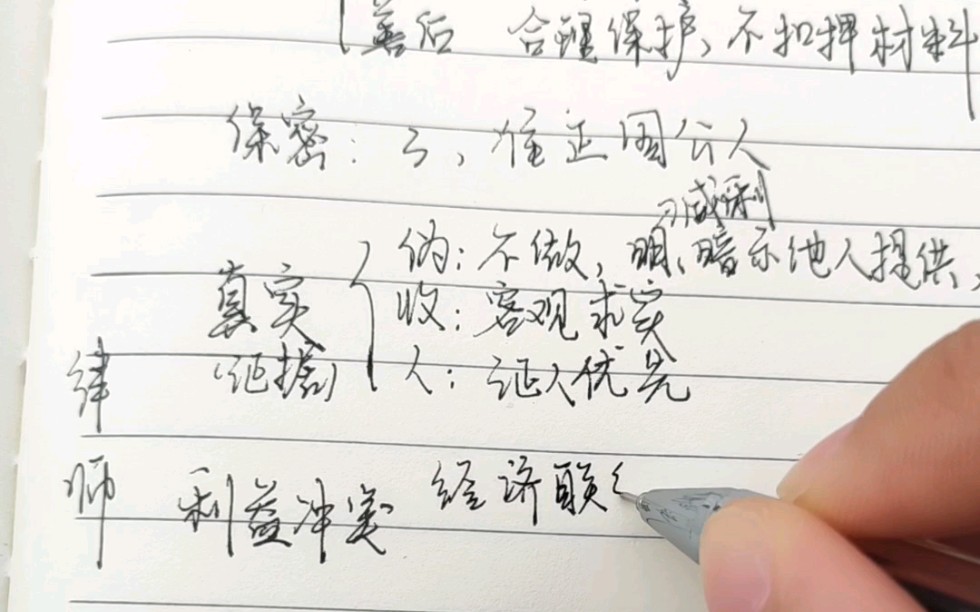 善后 合理保护、不扣押材料
保密：3，准正国公人
威利
真实 伪：不做，明、暗示他人提供，
收：客观求实
(证据) 人：证人优先
律
师 利益冲突 经济联